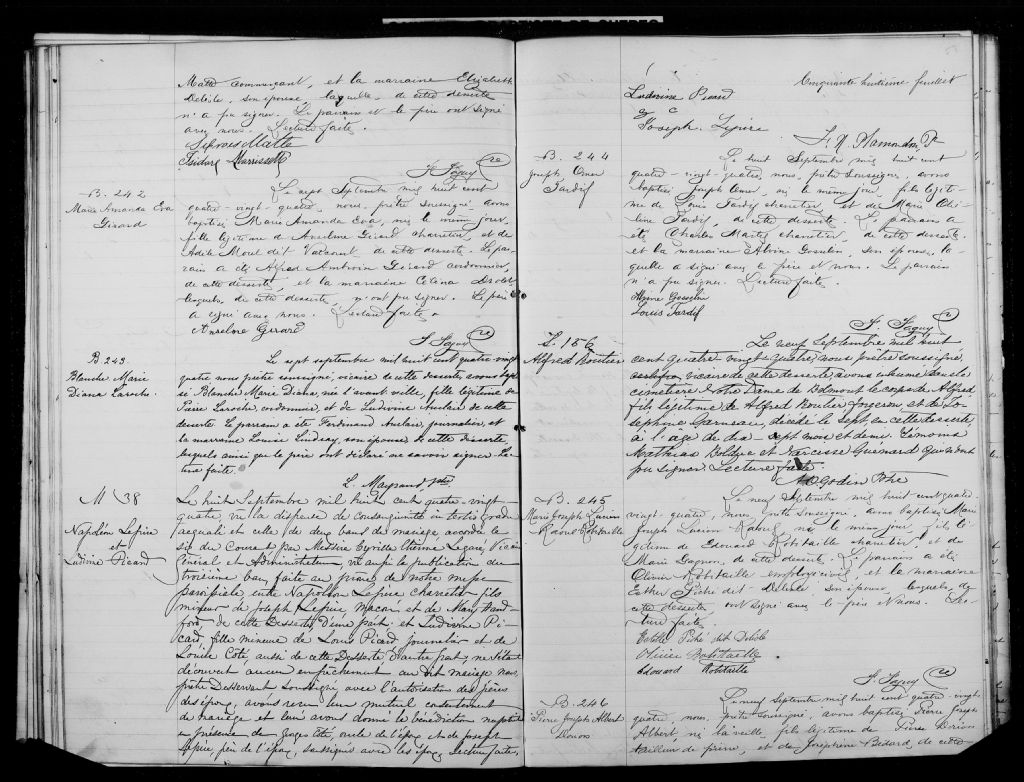 Matte Commerçant, et la marraine Elizabeth
Delisle, son épouse, laquelle, de cette desserte
n'a pu signer. Le parrain et le père ont signé
avec nous. Lecture faite.
Matte
Isidore Marrissette
B. 242
Marie Amanda Eva
Girard
Le sept Septembre mil huit cent
quatre-vingt-quatre, nous, prêtre soussigné, avons
baptisé Marie Amanda Eva, née le même jour,
fille légitime d'Anselme Girard charretier, et de
Adèle dit de cette desserte. Le par-
rain a été Alfred Girard cordonnier,
de cette desserte, et la marraine Célina
lesquels, de cette desserte, n'ont pu signer. Le père
a signé avec nous. Lecture faite.
Anselme Girard
B 243
Blanche Marie
Diana Laroche
Le sept septembre mil huit cent quatre vingt
quatre nous prêtre soussigné, vicaire de cette desserte, avons bapti-
sé Blanche Marie Diana, née l'avant veille, fille légitime de
Pierre Laroche, cordonnier, et de Ludivine Auclair de cette
desserte. Le parrain a été Ferdinand Auclair, journalier, et
la marraine Louise Lindsay, son épouse de cette desserte,
lesquels ainsi que le père ont déclaré ne savoir signer. Lec-
ture faite.
L. Mayrand Ptre
M 38
Napoléon Lepire
et
Ludivine Picard
Le huit Septembre mil huit cent quatre-vingt-
quatre, vu la dispense de consanguinité in tertio gradu
aequali et celle de deux bans de mariage accordée le
six du Courant par Messire Cyrille Etienne Legaré, Vicaire
Général et Administrateur, vu aussi la publication du
troisième ban, faite au prône de notre messe
paroissiale, entre Napoléon Lepire Charretier fils
mineur de Joseph Lepire, Maçon et de Mary Hand-
ford, de cette Desserte d'une part: et Ludivine Pi-
card, fille mineure de Louis Picard journalier et de
Louise Coté, aussi de cette Desserte d'autre part; ne s'étant
découvert aucun empêchement au dit mariage nous,
prêtre Desservant soussigné avec l'autorisation des pères
des époux, avons reçu un mutuel consentement
de mariage et leur avons donné la bénédiction nuptiale
en présence de Coté, oncle de l'époux et de Joseph
Lepire, père de l'époux, soussigné avec les époux, Lecture faite,
Cinquante huitième feuillet
Ludivine Picard
Joseph Lepire
B. 244
Joseph Omer
Tardif
Le huit Septembre mil huit cent
quatre-vingt-quatre, nous, prêtre soussigné, avons
baptisé Joseph Omer, né le même jour, fils légiti-
me de Louis Tardif charretier, et de Marie
Tardif, de cette desserte. Le parrain a
été Charles charretier, de cette desserte,
et la marraine Gosselin, son épouse, la-
quelle a signé avec le père et nous. Le parrain
n'a pu signer. Lecture faite.
Gosselin
Louis Tardif
S. 156
Alfred Boutier
Le neuf Septembre mil huit
cent quatre-vingt quatre, nous prêtre soussigné,
vicaire de cette desserte, avons inhumé dans le
cimetière Notre Dame de Belmont le corps de Alfred,
fils légitime de Alfred Boutier forgeron et de Jo-
sephine Garneau, décédé le Sept, en cette desserte,
à l'age de dix-sept mois et demi. Témoins
Mathias Bolduc et Narcisse Guenard Qui n'ont
pu signer Lecture faite
B. 245
Marie Joseph Lucien
Raoul Robitaille
Le neuf Septembre mil huit cent quatre-
vingt-quatre, nous, prêtre soussigné, avons baptisé Marie
Joseph Lucien Raoul, né le même jour, fils lé-
gitime de Edouard Robitaille charretier, et de
Marie Gagnon, de cette desserte. Le parrain a été
Olivier Robitaille employé civil, et la marraine
Esther Piché dit Delisle son épouse, lesquels, de
cette desserte, ont signé avec le père et nous. Lec-
ture faite.
Piché dit Delisle
Olivier Robitaille
Edouard Robitaille
B. 246
Pierre Joseph Albert
Le neuf Septembre mil huit cent quatre-vingt-
quatre, nous, prêtre soussigné, avons baptisé Pierre Joseph
Albert, né la veille, fils légitime de Pierre
tailleur de pierre, et de Joséphine Bédard, de cette